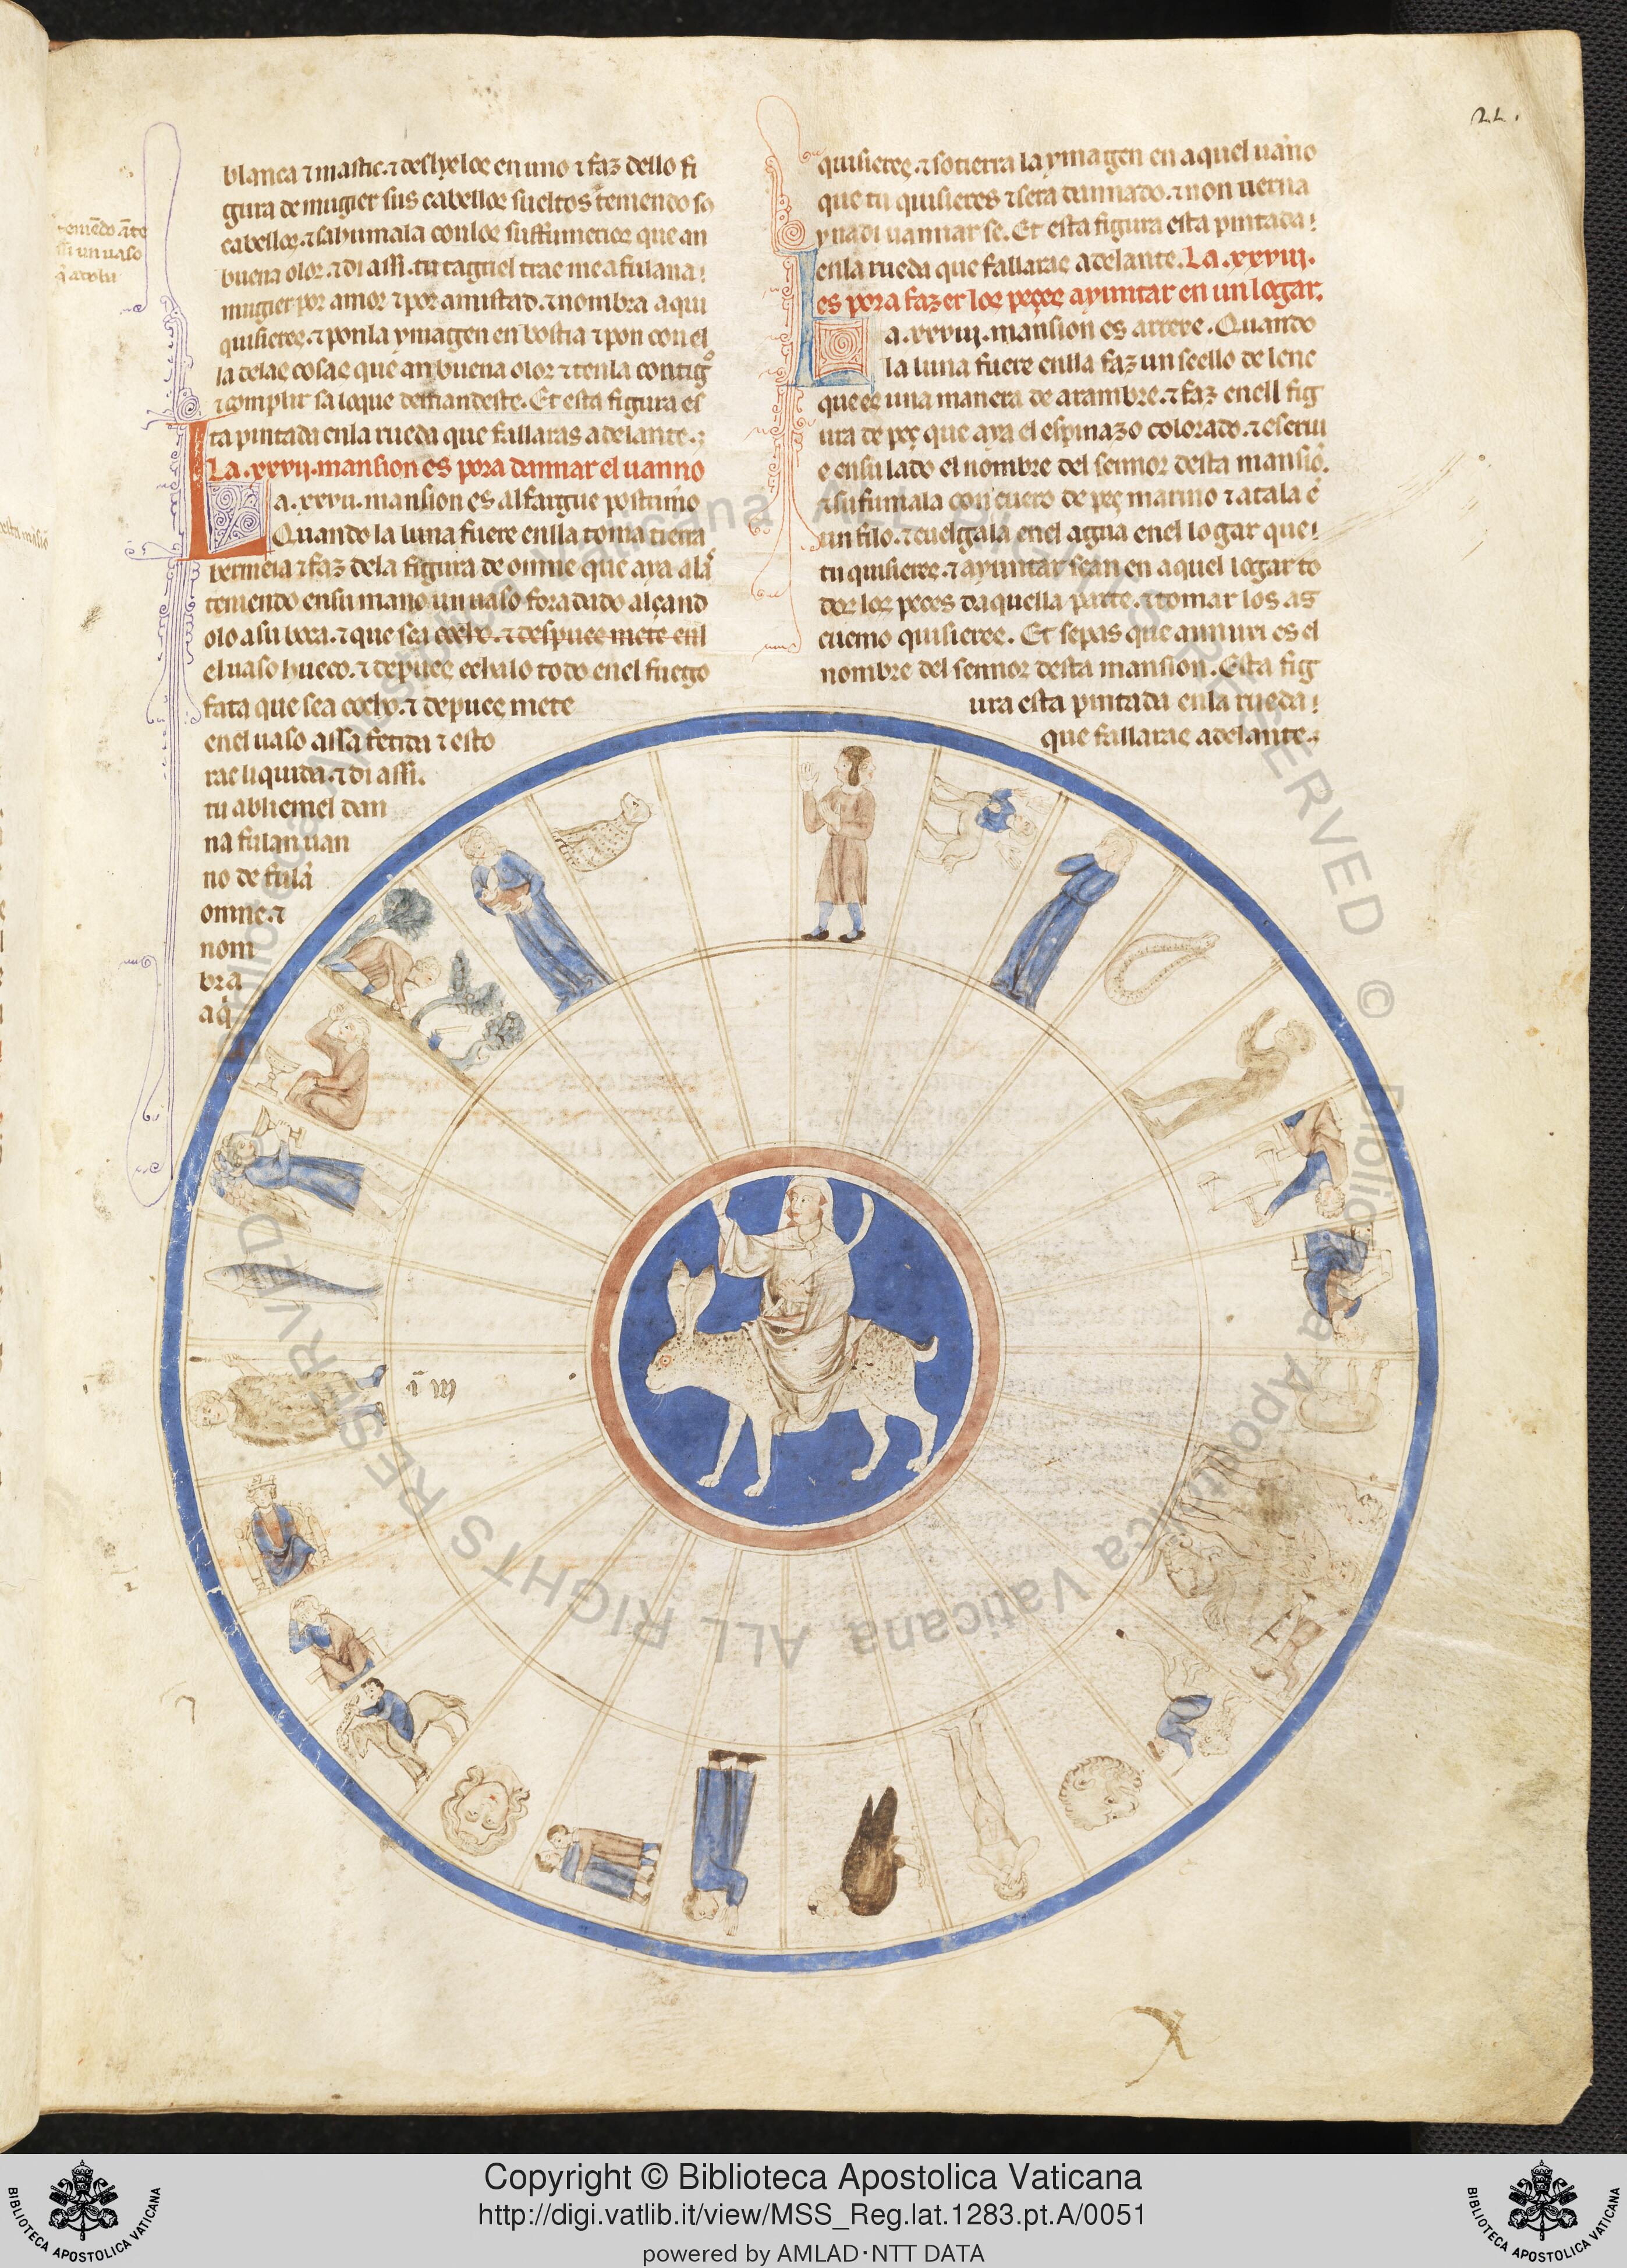 blanca ⁊ mastic. ⁊ deslyelos en uno ⁊ faz dello fi
gura de mugier sus cabellos sueltos teniendo so
cabellos. ⁊ sahumala con los suffumerios que an
buena olor. ⁊ di assi. tu tagriel trae me a fulana
mugier por amor ⁊ por amistad. ⁊ nombra a qui
quisieres. ⁊ pon la ymagen en bostia ⁊ pon con el
la delas cosas que an buena olor ⁊ ten la contigo
⁊ complir sa lo que demandeste. Et esta figura es
ta pintada en la rueda que fallaras adelante.
La .xxvij. mansion es pora dannar el uanno
La .xxvii. mansion es alfargue postrimo
Quando la luna fuere enlla toma tierra
bermeia ⁊ faz dela figura de omne que aya alas
teniendo en su mano un uaso foradado alçand
olo a su boca. ⁊ que sea cocho. ⁊ despues mete enl
el uaso hueco. ⁊ depues echalo todo en el fuego
fata que sea cocho. ⁊ depues mete
en el uaso assa fetida ⁊ esto
rac liquida. ⁊ di assi.
tu abliemel dan
na fulan uan
no de fulan
omne. ⁊
nom
bra
a q̃
22.
quisieres. ⁊ sotierra la ymagen en aquel uanno
que tu quisieres ⁊ sera dannado. ⁊ non uerna
y nadi uannar se. Et esta figura esta pintada
en la rueda que fallaras adelante. La .xxviij.
es pora fazer los peçes ayuntar en un logar.
La .xxviij. mansion es arrexe. Quando
la luna fuere enlla faz un seello de lene
que es una manera de arambre. ⁊ faz en ell fig
ura de peç que aya el espinazo colorado. ⁊ escriu
e en su lado el nombre del sennor desta mansiõ.
⁊ sufumala con cuero de peç marino ⁊ atala ẽ
un filo. ⁊ cuelgala en el agua en el logar que
tu quisieres. ⁊ ayuntar sean en aquel logar to
dos los peces daquella parte. ⁊ tomar los as
cuemo quisieres. Et sepas que annuxi es el
nombre del sennor desta mansion. Esta fig
ura esta pintada en la rueda
que fallaras adelante.
Copyright © Biblioteca Apostolica Vaticana
http://digi.vatlib.it/view/MSS_Reg.lat.1283.pt.A/0051
powered by AMLAD·NTT DATA
BIBLIOTECA APOSTOLICA VATICANA
BIBLIOTECA APOSTOLICA VATICANA
Biblioteca Apostolica Vaticana ALL RIGHTS RESERVED © Biblioteca Apostolica Vaticana ALL RIGHTS RESERVED ©